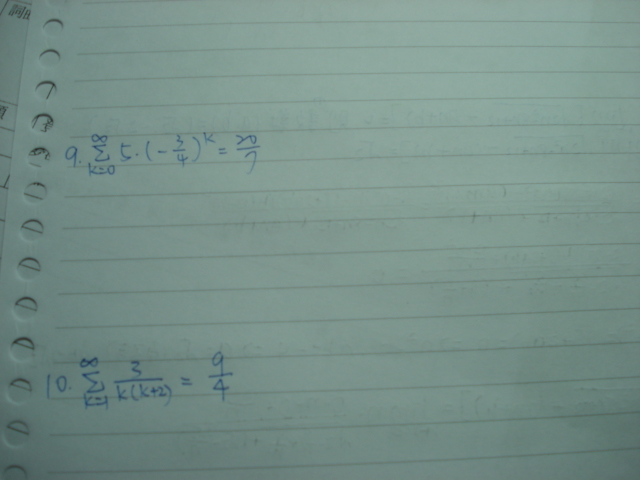 9. ∞∑k=0 5·(-3/4)^k = 20/7
10. ∞∑k=1 3/k(k+2) = 9/4